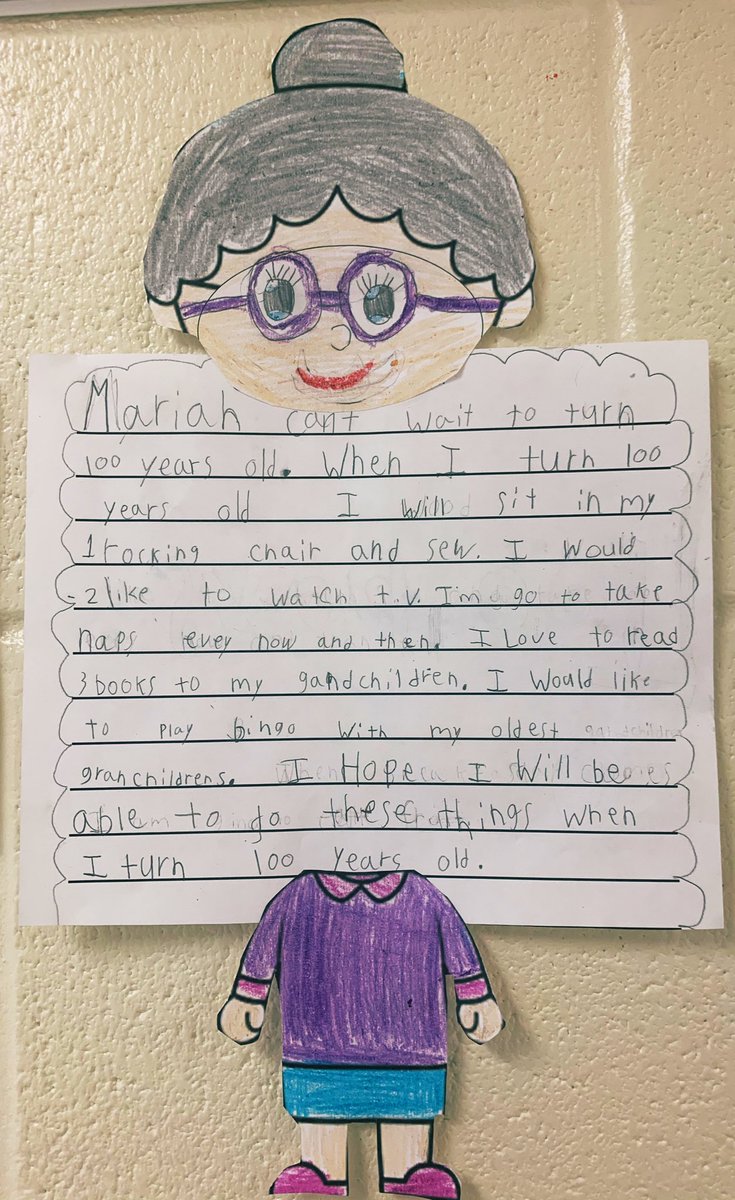 Mariah cant wait to turn
100 years old. When I turn 100
years old I will sit in my
1 rocking chair and sew. I would
- 2 like to watch t.v. I'm go to take
naps evey now and then. I Love to read
3 books to my gandchildren. I would like
to play bingo with my oldest
granchildrens. I Hope I will be
able to do these things when
I turn 100 years old.